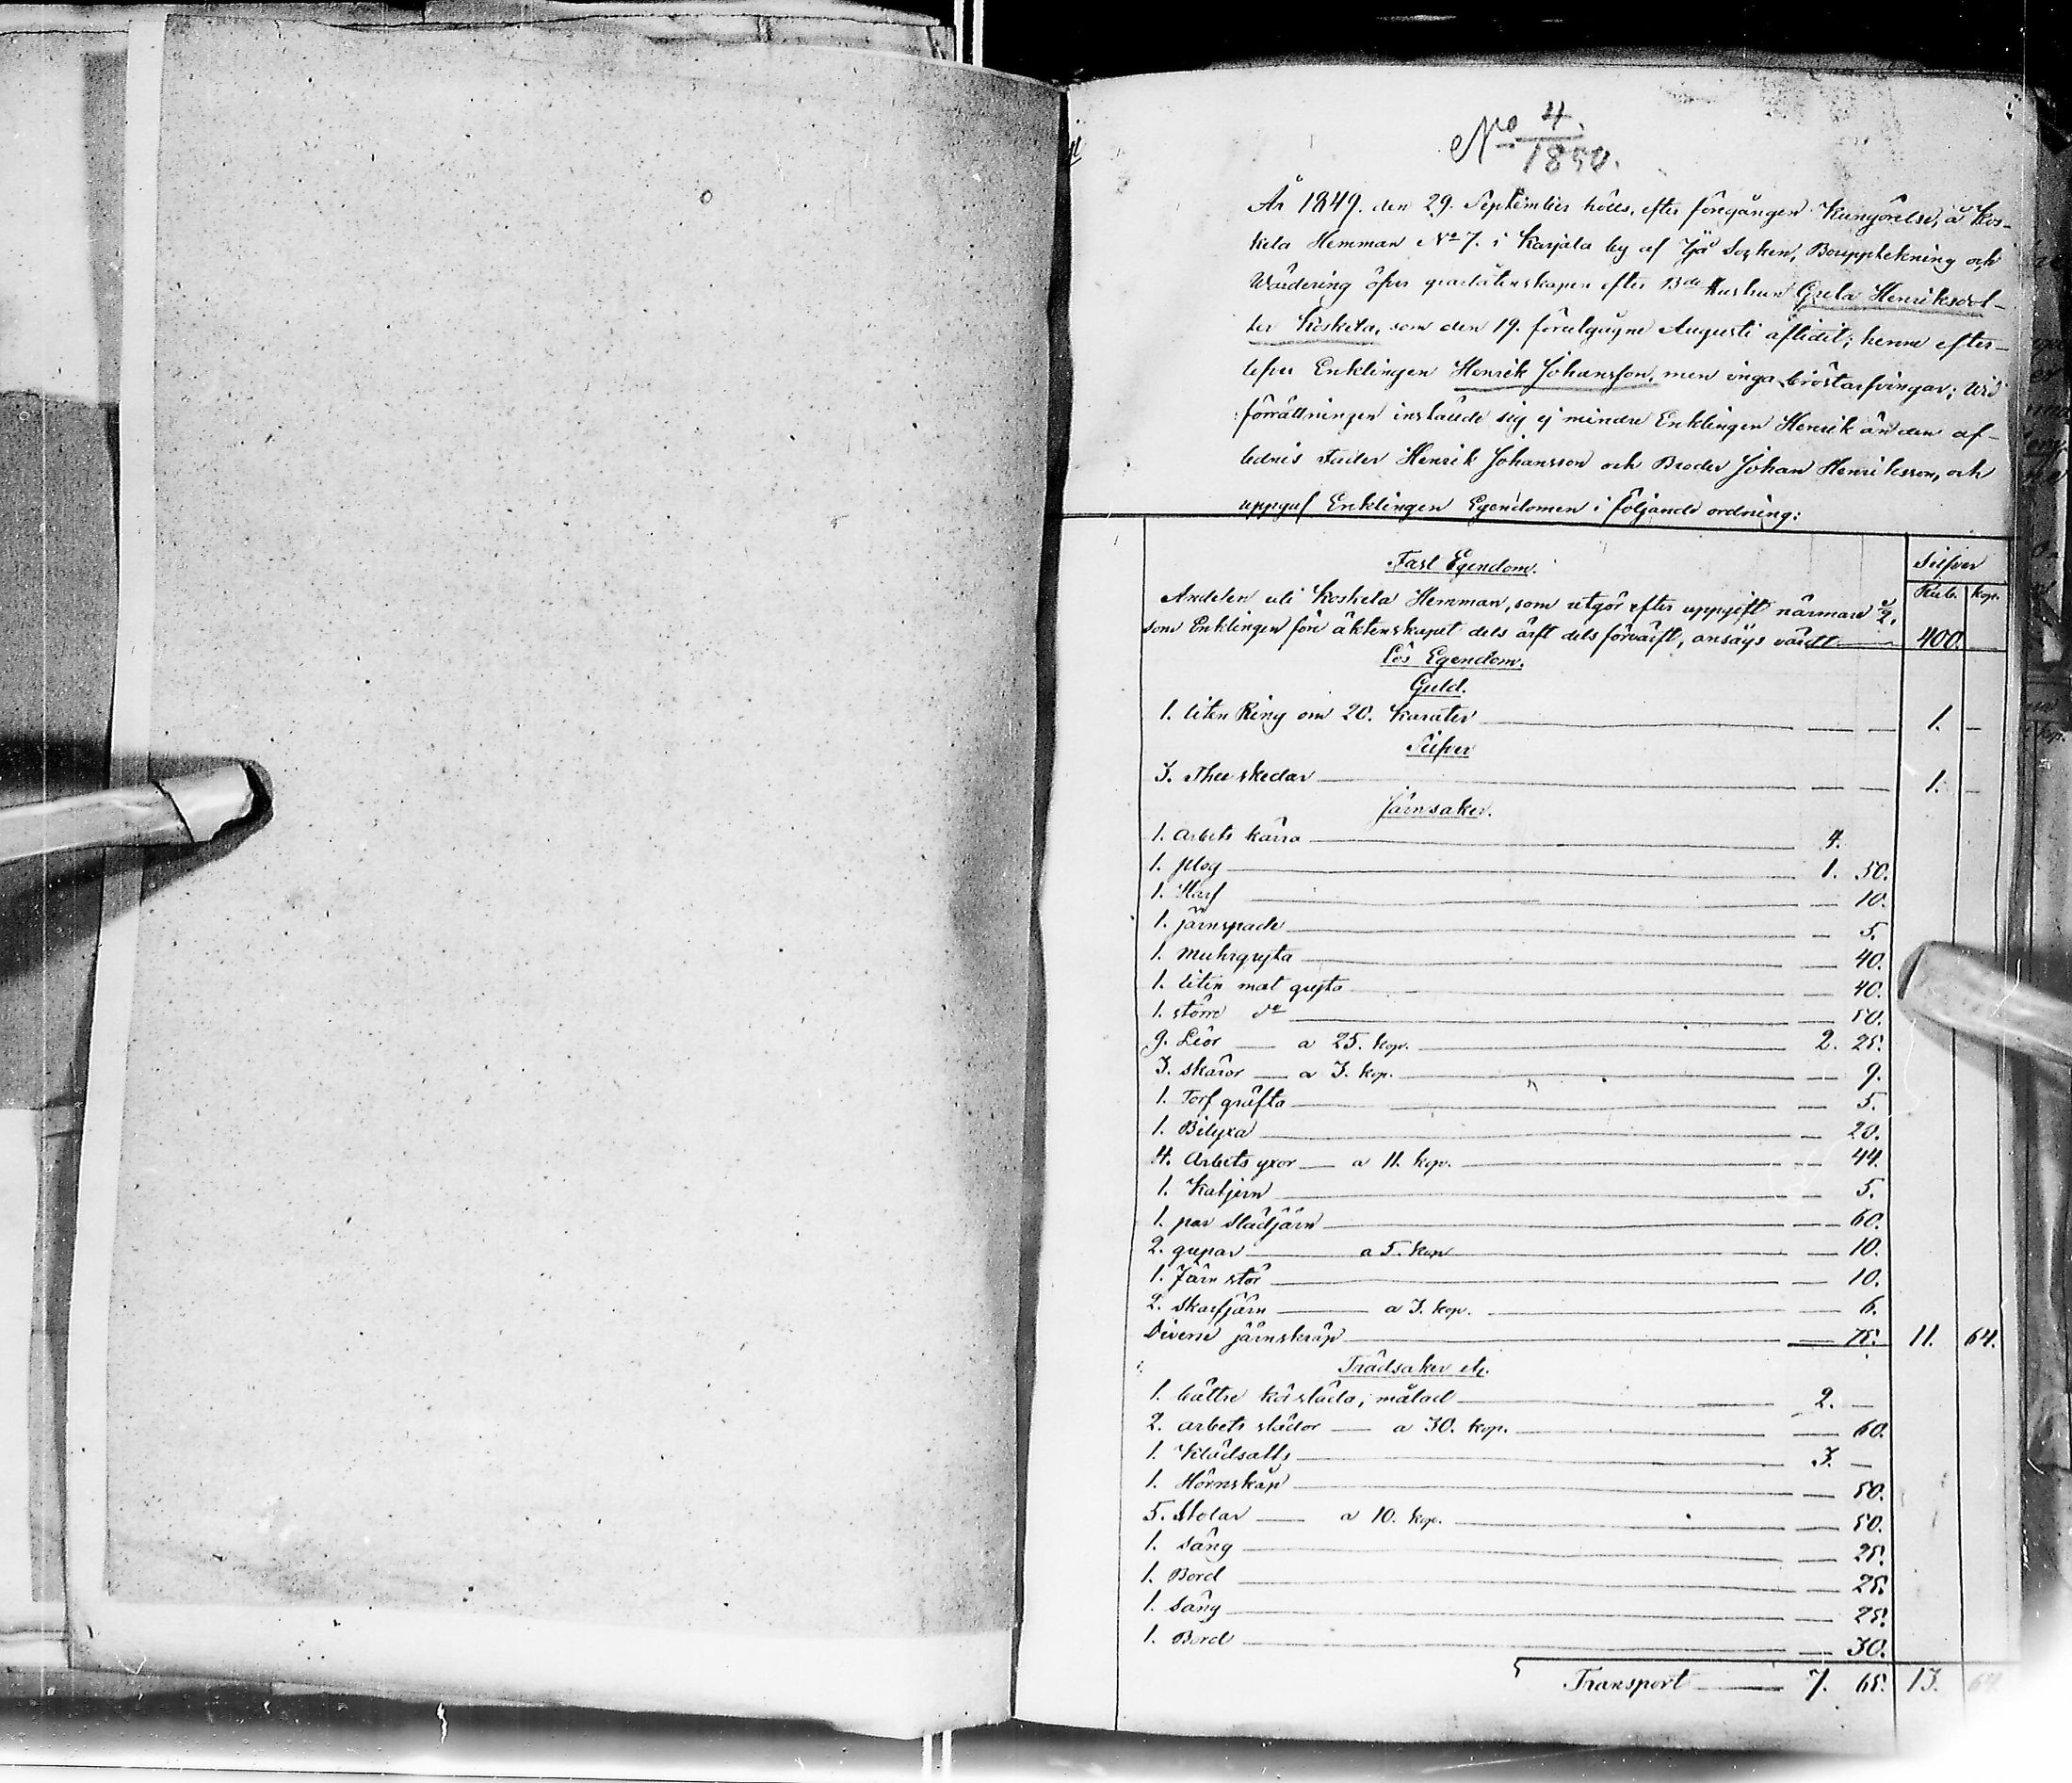 No 4/1850.
År 1849. den 29. September hölls, efter föregången Kungörelse, å Kos-
kela Hemman No 7. i Karjala by af Socken, Bouppteckning och
Wärdering öfver qvarlåtenskapen efter Bde Hustrun Greta Henriksdot-
ter Koskela, som den 19. förutgågne Augusti aflidit; henne efter-
lefver Enklingen Henrik Johansson, men inga bröstarfvingar; Wid
förrättningen instälde sig ej mindre Enklingen Henrik än den af-
lednes Fader Henrik Johansson och Broder Johan Henriksson, och
uppgaf Enklingen Egendomen i följande ordning:
Silfver
Rub. kop.
Fast Egendom.
Andelen uti Koskela Hemman, som utgör efter uppgift närmare 1/2,
som Enklingen före äktenskapet dels ärft dels förvärft, ansågs värdt — 400.
Lös Egendom.
Guld.
1. liten Ring om 20. Karater — 1. —
Silfver
3. Theskedar — 1. —
Järnsaker.
1. Arbets kärra — 4.
1. plog — 1. 50.
1. Harf — 10.
1. järnspade — 5.
1. Muhrgryta — 40.
1. liten mat gryta — 40.
1. större do — 50.
9. Liör — a 25. kop. — 2. 25.
3. skäror — a 3. kop. — 9.
1. Torf gräfta — 5.
1. Bilyxa — 20.
4. Arbets yxor — a 11. kop. — 44.
1. Katjern — 5.
1. par Slädjärn — 60.
2. grepar — a 5. kop — 10.
1. Järn stör — 10.
2. skarfjärn — a 3. kop. — 6.
Diverse järnskrap — 75. 11. 64.
Trädsaker etc.
1. bättre körsläda, målad — 2. —
2. arbets slädor — a 30. kop. — 60.
1. Klädsatts — 3. —
1. Hörnskåp — 50.
5. Stolar — a 10. kop. — 50.
1. säng — 25.
1. Bord — 25.
1. säng — 25.
1. Bord — 30.
Transport — 7. 65. 13. 64